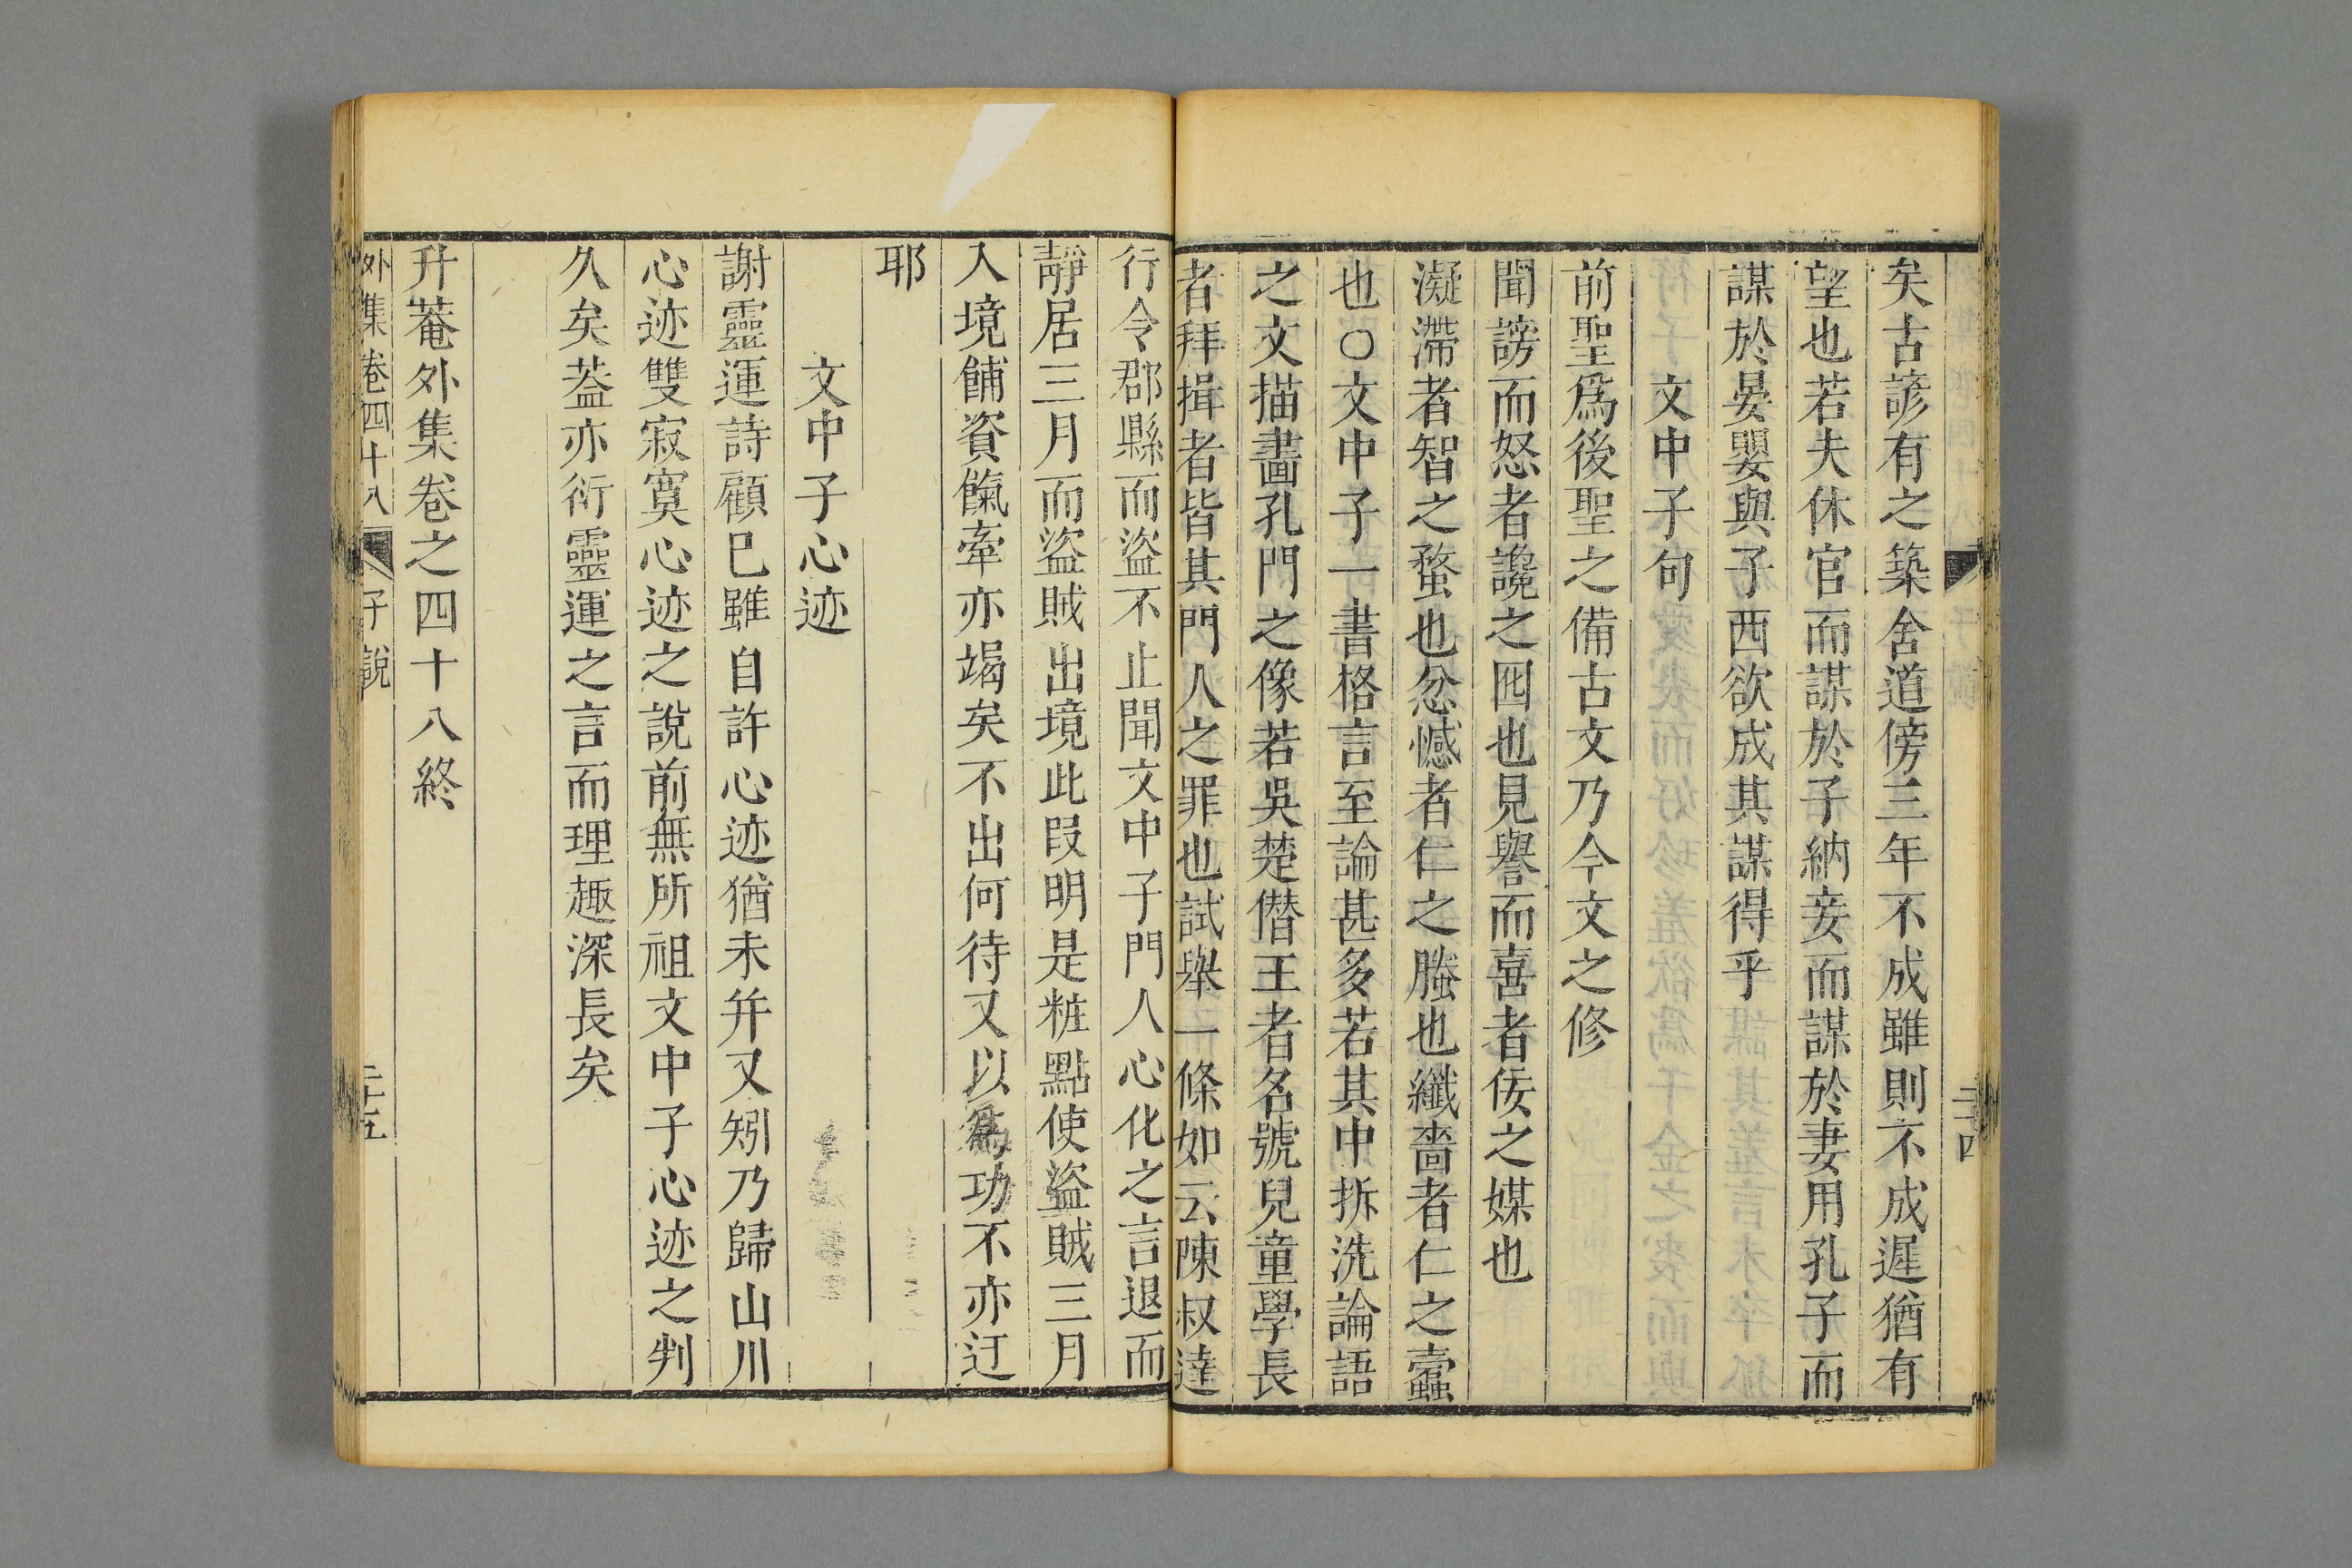 矣古諺有之築舍道傍三年不成雖則不成遲猶有
望也若夫休官而謀於子納妾而謀於妻用孔子而
謀於晏嬰與子西欲成其謀得乎
文中子句
前聖爲後聖之備古文乃今文之修
聞謗而怒者讒之囮也見譽而喜者佞之媒也
凝滯者智之蝥也忿憾者仁之螣也纖嗇者仁之蠹
也○文中子一書格言至論甚多若其中拆洗論語
之文描畵孔門之像若吳楚僣王者名號兒童學長
者拜揖者皆其門人之罪也試舉一條如云陳叔達
行令郡縣而盜不止聞文中子門人心化之言退而
靜居三月而盜賊出境此叚明是粧點使盜賊三月
入境餔資餼牽亦竭矣不出何待又以爲功不亦迂
耶
文中子心迹
謝靈運詩顧巳雖自許心迹猶未幷又矧乃歸山川
心迹雙寂寞心迹之說前無所祖文中子心迹之判
久矣葢亦衍靈運之言而理趣深長矣
升菴外集卷之四十八終
外集卷四十八 子說 二十五